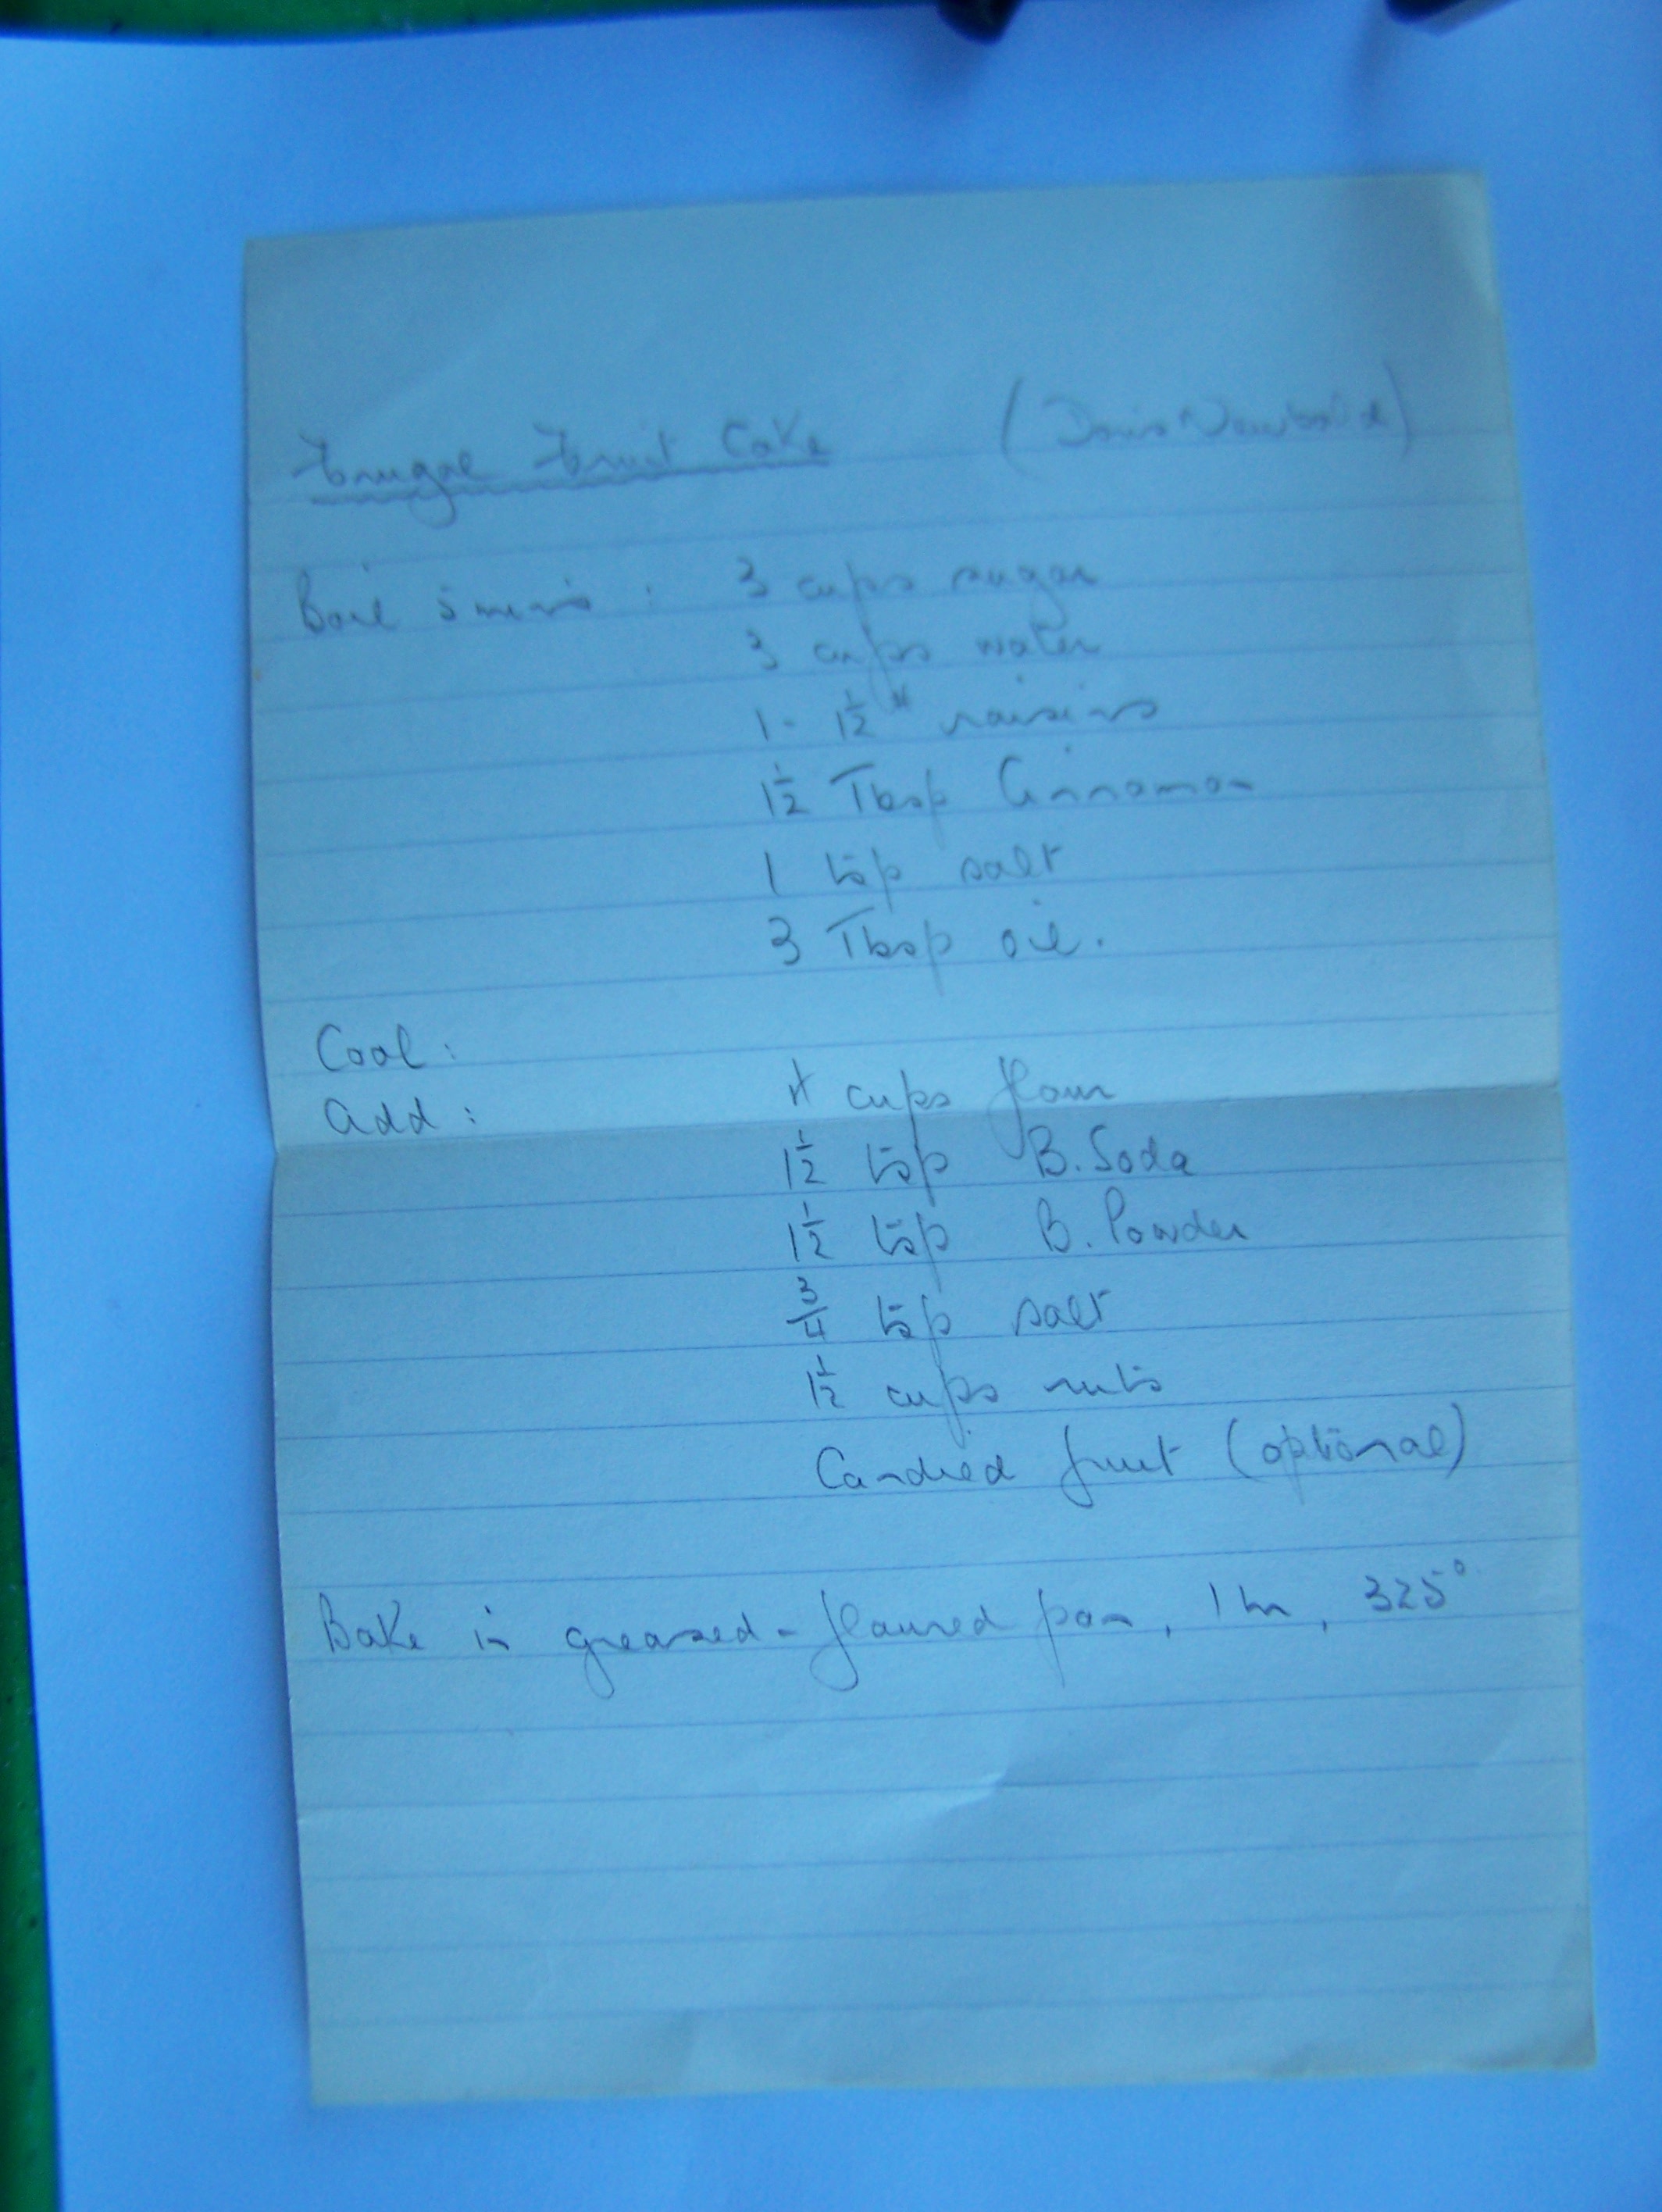 Frugal Fruit Cake (Doris Newbold)
Boil 5 mins: 3 cups sugar
3 cups water
1 - 1 1/2 # raisins
1 1/2 Tbsp Cinnamon
1 tsp salt
3 Tbsp oil.
Cool:
Add: cups flour
1 1/2 tsp B. Soda
1 1/2 tsp B. Powder
3/4 tsp salt
1 1/2 cups nuts
Candied fruit (optional)
Bake in greased - floured pan, 1 hr, 325°